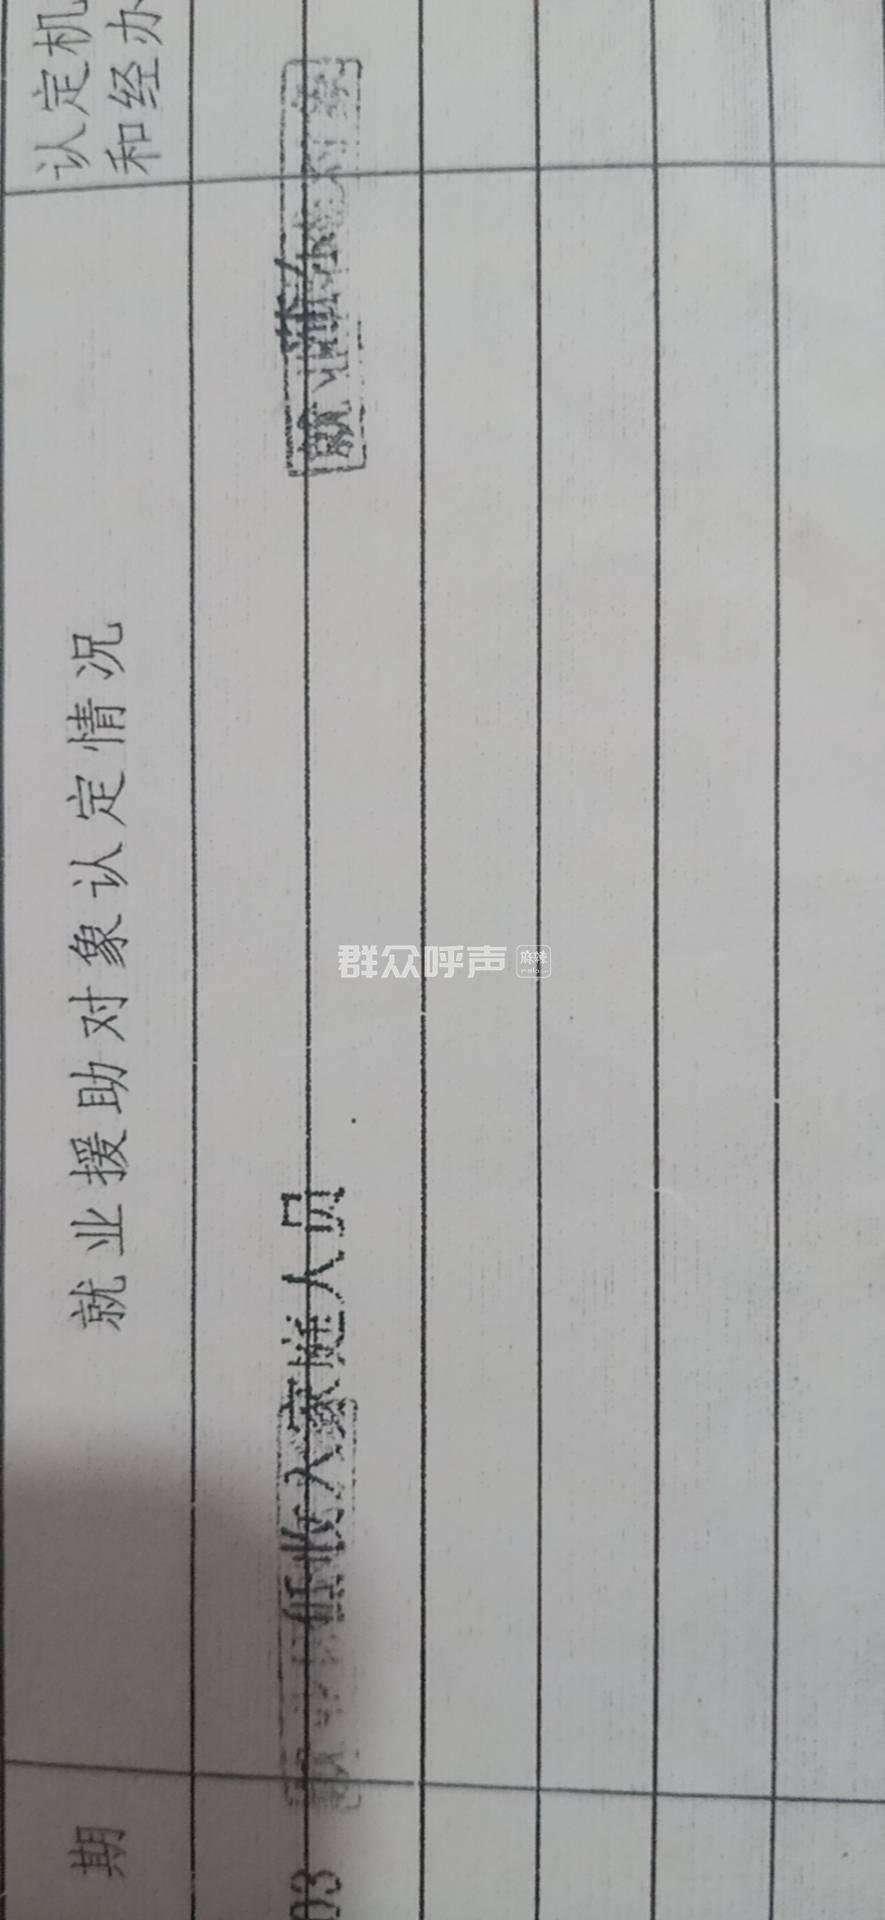 期
就业援助对象认定情况
认定机
和经办
03
低收入家庭人员
就业
群众呼声
麻辣